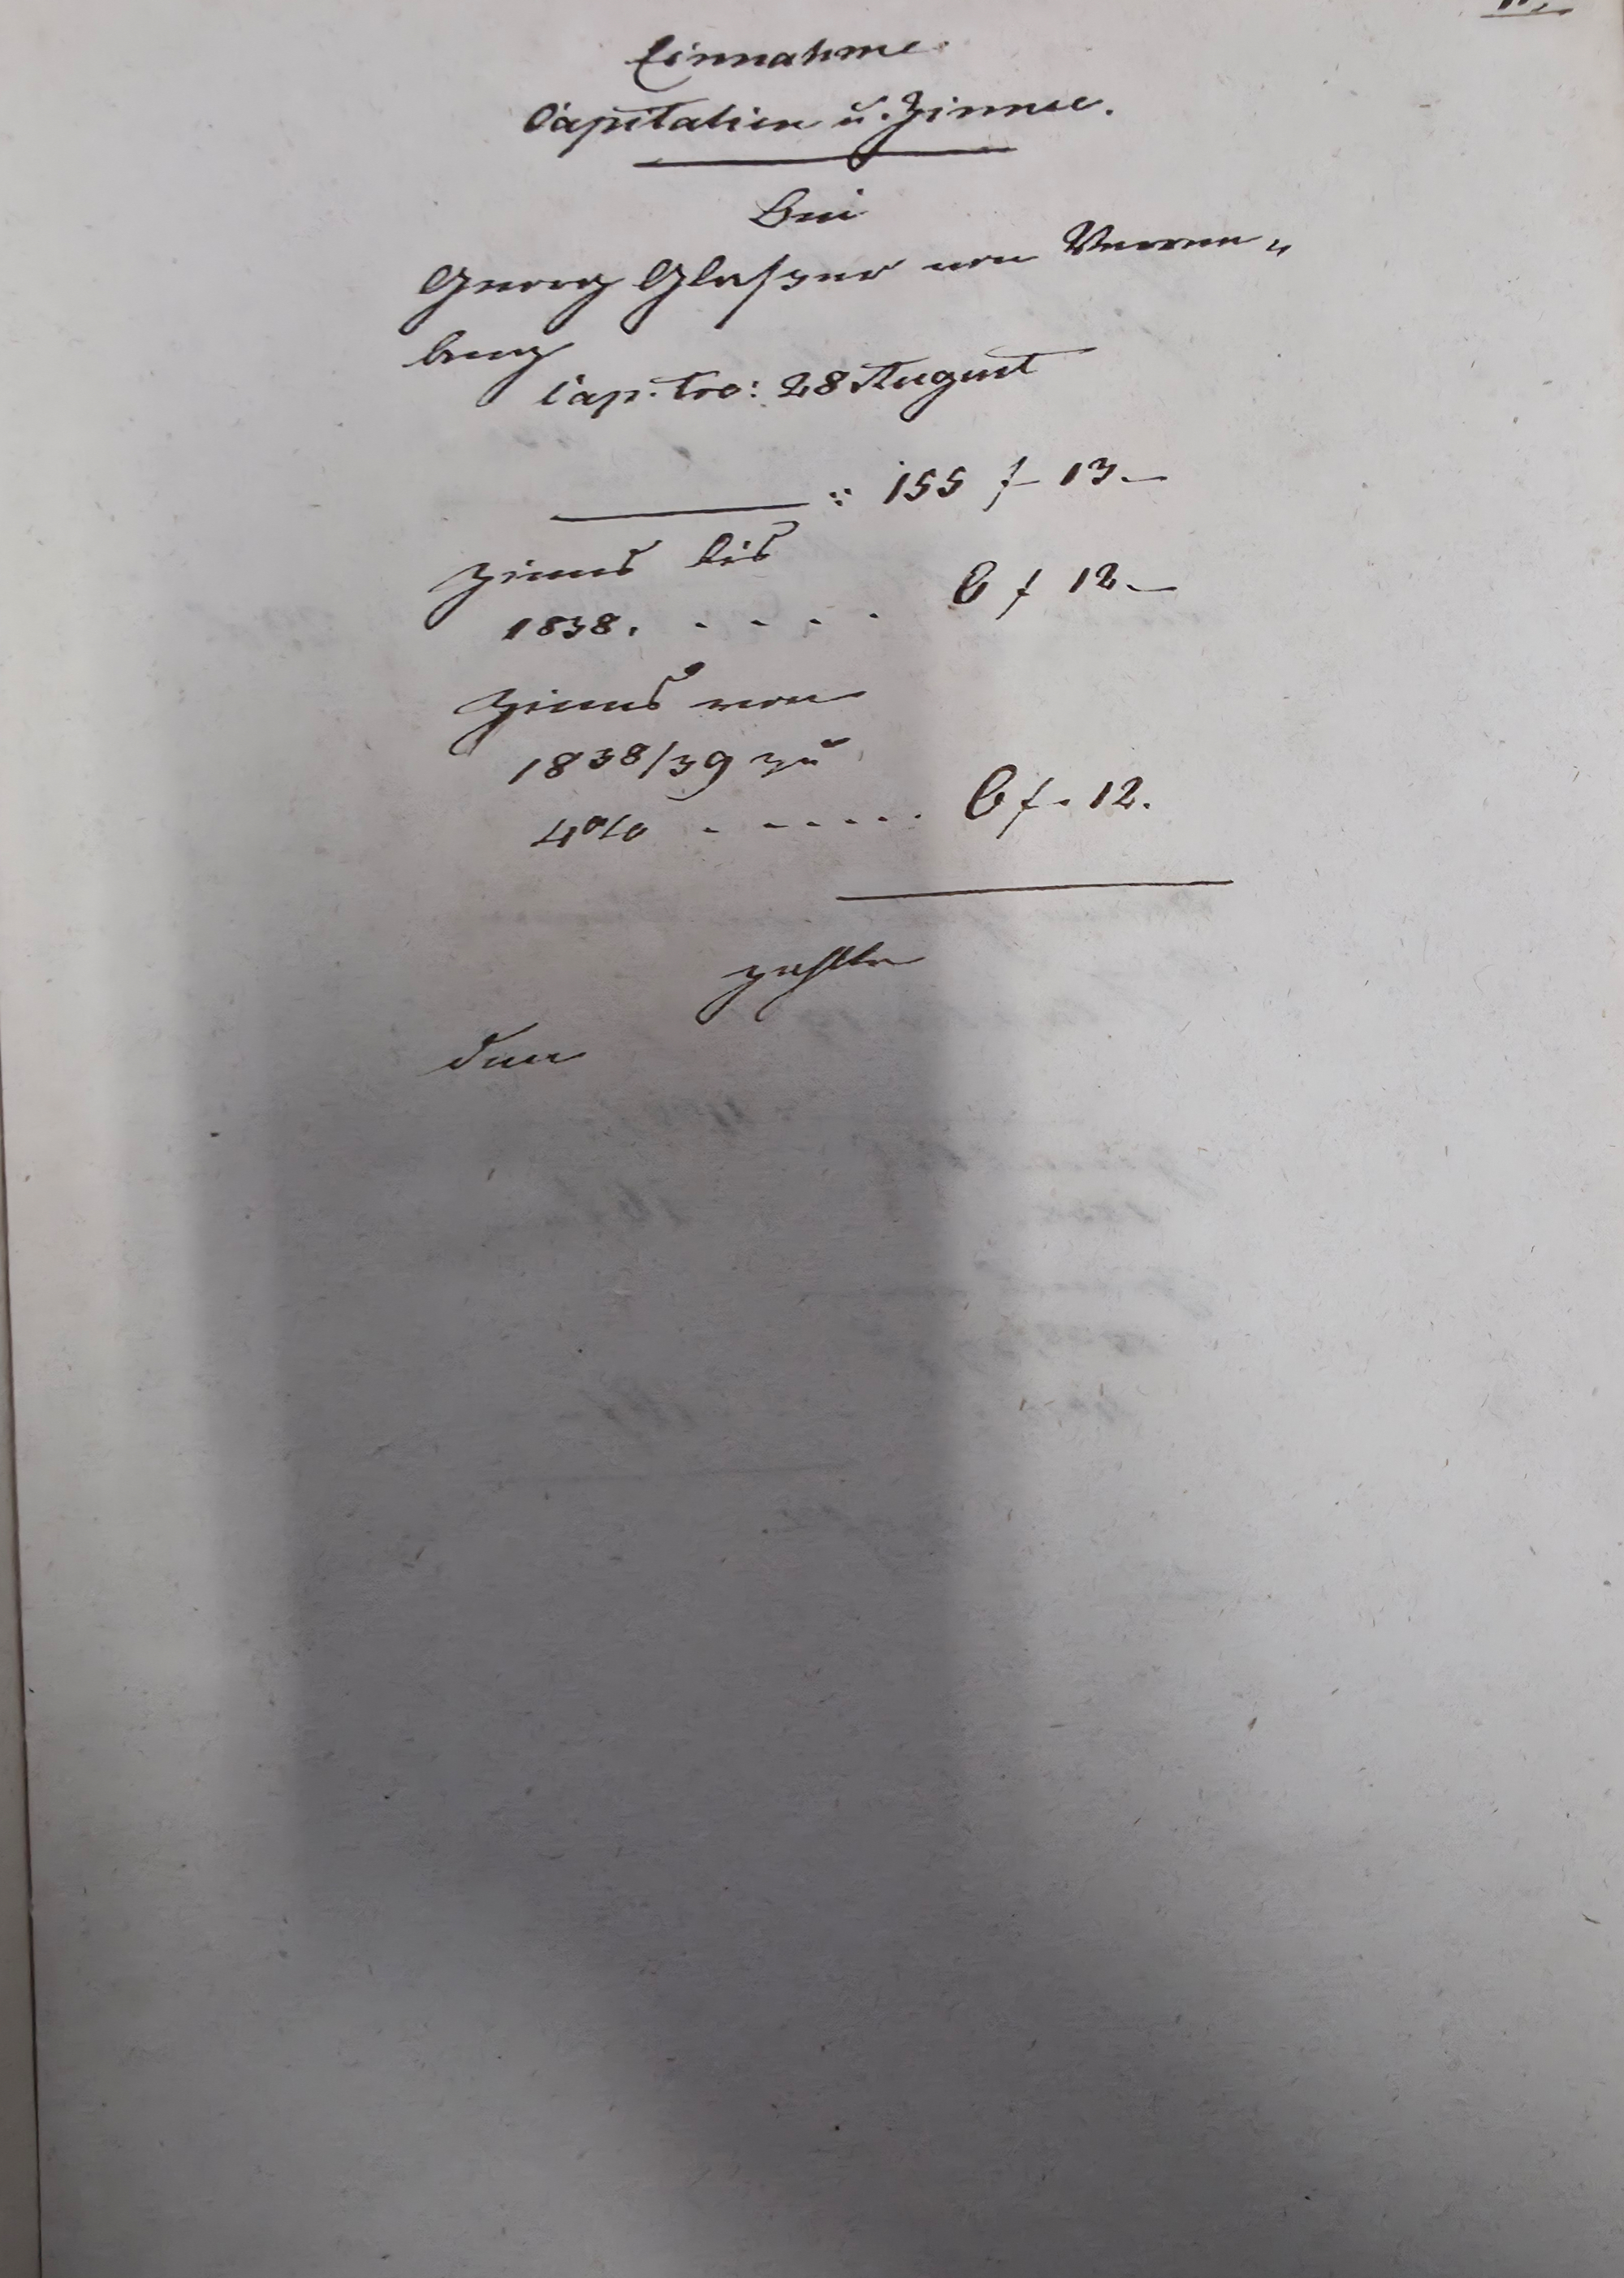 Einnahme
Capitalien u. Zinnse.
Bei
Georg Glaßer von
berg
Cap. to: 28 August
: 155 f 13.
Zinns bis
1838. . . . . 6 f 12.
Zinns von
1838/39 zu
4% . . . . . . 6 f. 12.
zahlte
den